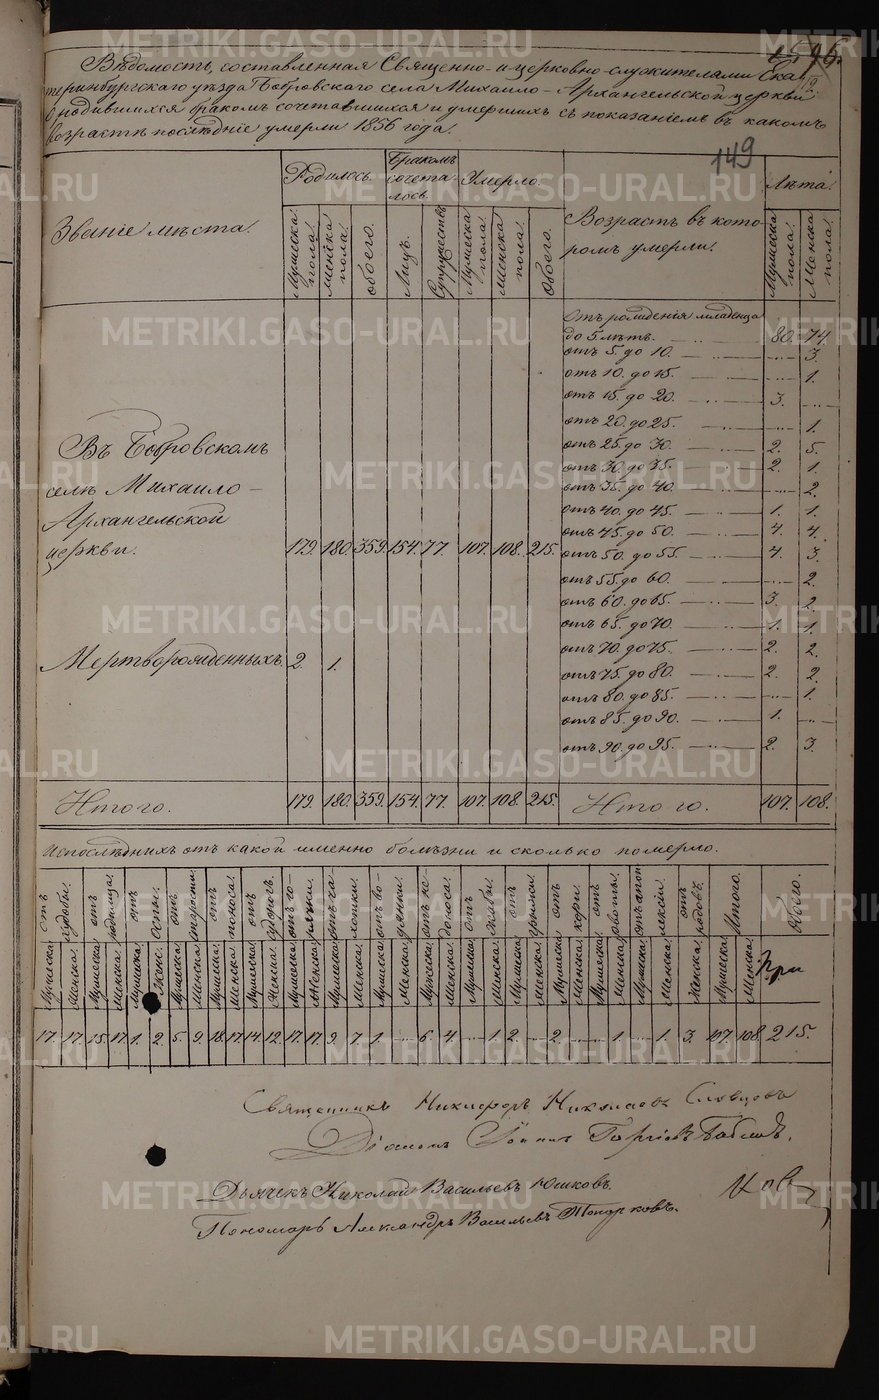 Вѣдомость, составленная Священно- и церковно-служителями Ека
теринбургскаго уѣзда Бобровскаго села Михаило-Архангельской церкви
О родившихся бракомъ сочетавшихся и умершихъ съ показаніемъ въ какомъ
возрастѣ послѣдніе умерли 1856 года.
149
Званіе мѣста. Родилось. Бракомъ сочеталось. Умерло. Возрастъ въ которомъ умерли. Лѣта.
Мужеска пола. Женска пола. Обоего. Лицъ. Супружествъ Мужеска пола. Женска пола. Обоего. Мужеска пола. Женска пола.
Отъ рожденія младенца
до 5 лѣтъ. 80. 74.
отъ 5. до 10. — 3.
отъ 10. до 15. — 1.
отъ 15. до 20. 3. —
отъ 20. до 25. — 1.
отъ 25. до 30. 2. 5.
отъ 30. до 35. 2. 1.
отъ 35. до 40. — 2.
отъ 40. до 45. 1. 1.
отъ 45. до 50. 4. 4.
отъ 50. до 55. 4. 3.
отъ 55. до 60. — 2.
отъ 60. до 65. 3. 2.
отъ 65. до 70. 1. 1.
отъ 70. до 75. 2. 2.
отъ 75. до 80. 2. 2.
отъ 80. до 85. — 1.
отъ 85. до 90. 1. —
отъ 90. до 95. 2. 3.
Въ Бобровскомъ
селѣ Михаило-
Архангельской
церкви. 179. 180. 359. 154. 77. 107. 108. 215.
Мертворожденныхъ. 2. 1.
Итого. 179. 180. 359. 154. 77. 107. 108. 215. Итого. 107. 108.
Изъ послѣднихъ отъ какой именно болѣзни и сколько померло.
отъ отъ родимца. отъ оспы. отъ старости. отъ поноса. отъ отъ го- отъ ча-хотки. отъ во- отъ отъ отъ отъ кори. отъ рвоты. отъ апоплексіи. отъ родовъ. Итого. Обоего.
Мужеска Женска. Мужеска Женска. Мужеска. Жен. Мужеска Женска Мужеска Женска Мужеска Женска Мужеска Женска Мужеска Женска. Мужеска Женска. Мужеска Женска. Мужеска Женска. Мужеска Женска. Мужеска Женска. Мужеска Женска Мужеска Женска. Женска. Мужеска Женска.
17. 17. 15. 17. 1. 2. 5. 9. 18. 17. 14. 12. 17. 17. 9. 7. 1. — 6. 4. — 1. 2. — 2. — — 1. — 1. 3. 107. 108. 215.
Священникъ Никифоръ Николаевъ Словцовъ
Діаконъ Іоаннъ
Дьячекъ Николай Васильевъ Юшковъ.
Пономарь Александръ Васильевъ Топорковъ.
METRIKI.GASO-URAL.RU